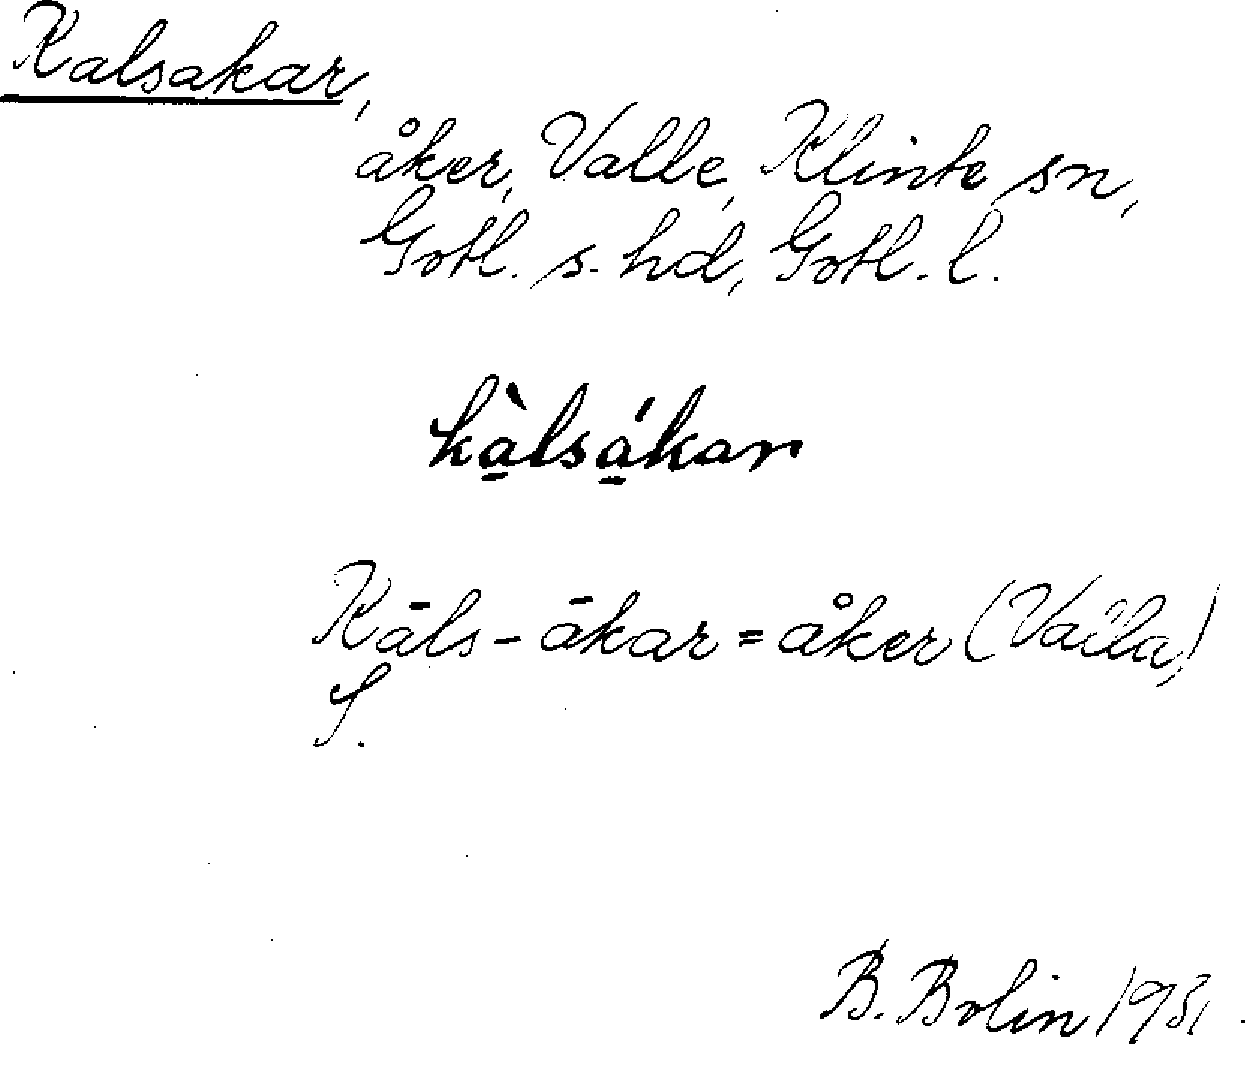 Kalsakar,
åker, Valle, Klinte sn,
Gotl. s. hd, Gotl. l.
kà̱lsá̱kar
Kāls-ākar = åker (Valla,)
f.
B. Bolin 1931.